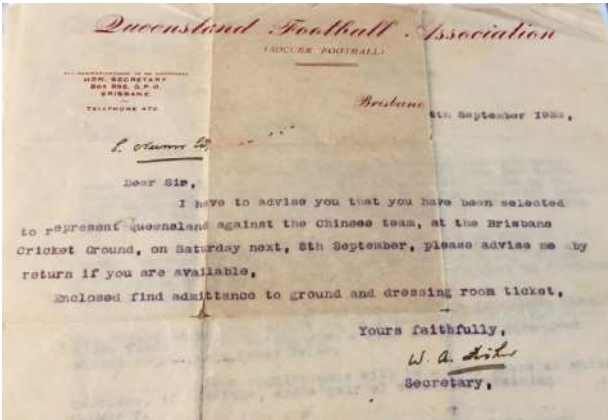 Queensland Football Association
(SOCCER FOOTBALL)
ALL COMMUNICATIONS TO BE ADDRESSED
HON. SECRETARY
BOX G.P.O.
BRISBANE
TELEPHONE
Brisbane
September
Dear Sir,
I have to advise you that you have been selected
to represent Queensland against the Chinese team, at the Brisbane
Cricket Ground, on Saturday next, 8th September, please advise me by
return if you are available,
Enclosed find admittance to ground and dressing room ticket,
Yours faithfully,
W. A.
Secretary,